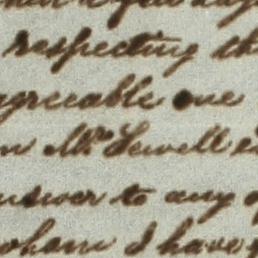 respecting th
agreeable one
Mrs. Sewell
answer to any
whom I have